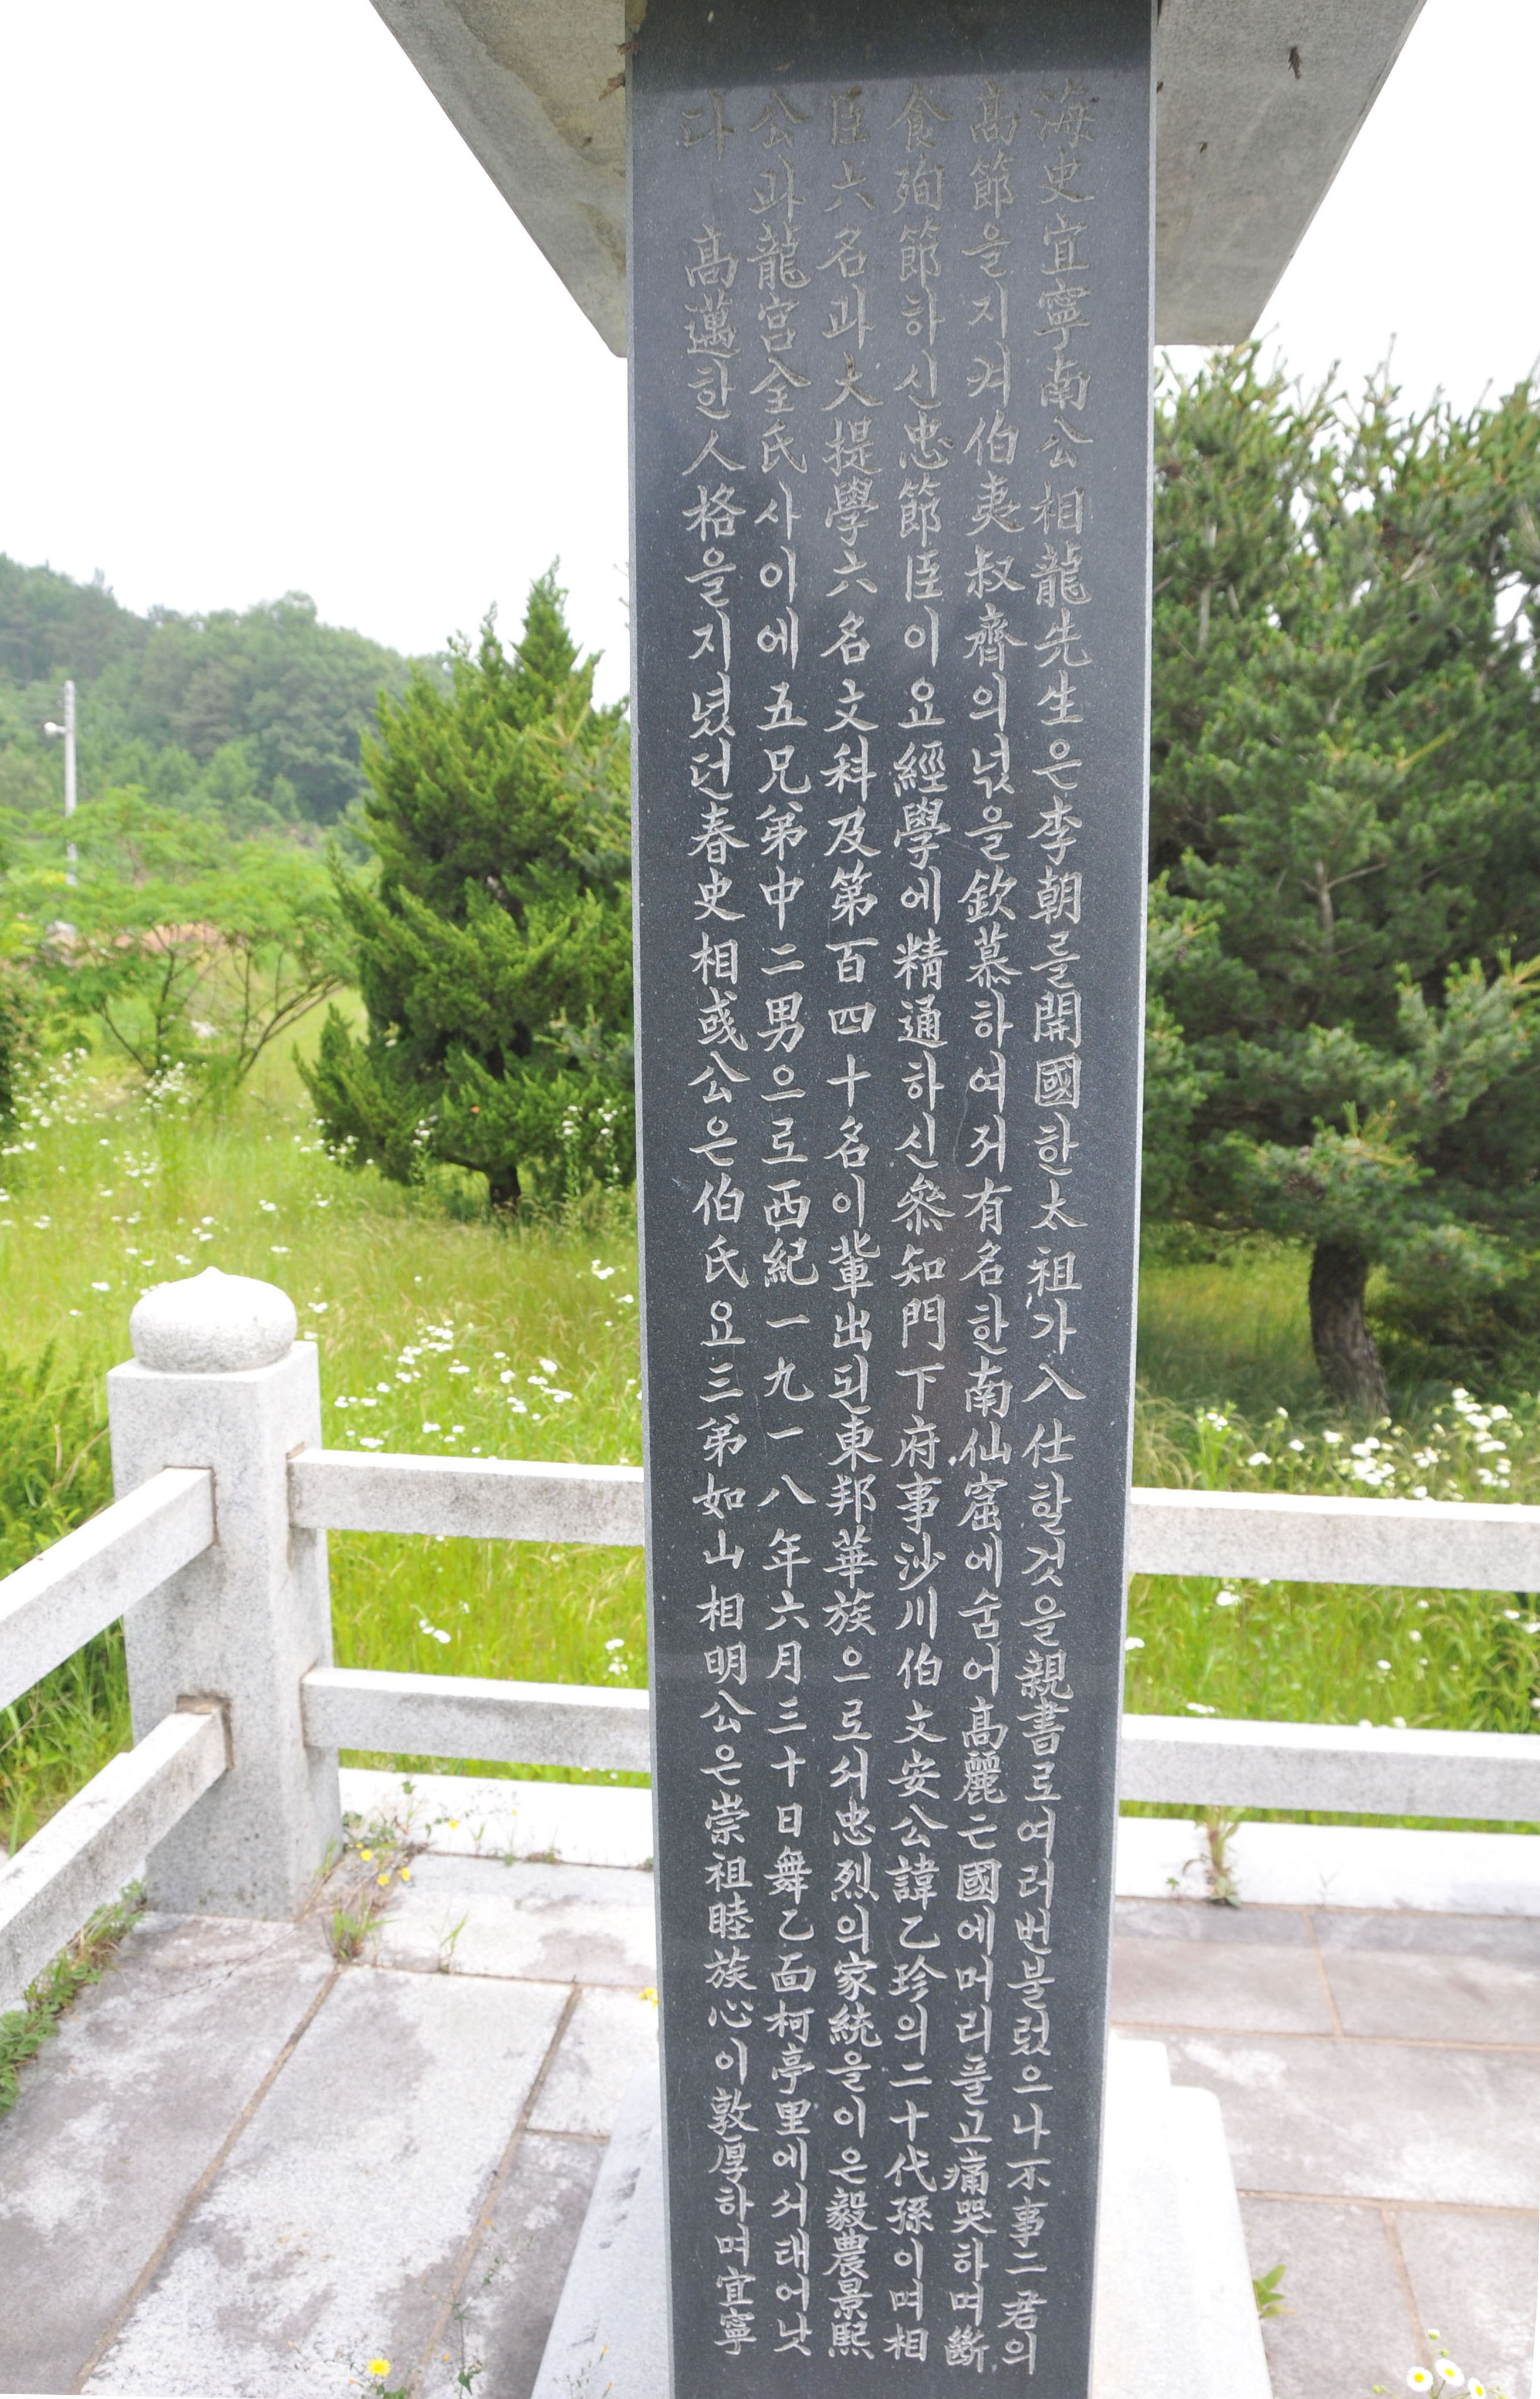 海史宜寧南公相龍先生은李朝를開國한太祖가入仕할것을親書로여러번불렀으나不事二君의
高節을지켜伯夷叔齊의넋을欽慕하여저有名한南仙窟에숨어高麗亡國에머리풀고痛哭하며斷
食殉節하신忠節臣이요經學에精通하신叅知門下府事沙川伯文安公諱乙珍의二十代孫이며相
臣六名과大提學六名文科及第百四十名이輩出된東邦華族으로서忠烈의家統을이은毅農景熙
公과龍宮全氏사이에五兄弟中二男으로西紀一九一八年六月三十日舞乙面柯亭里에서태어낫
다 高邁한人格을지녔던春史相彧公은伯氏요三弟如山相明公은崇祖睦族心이敦厚하며宜寧